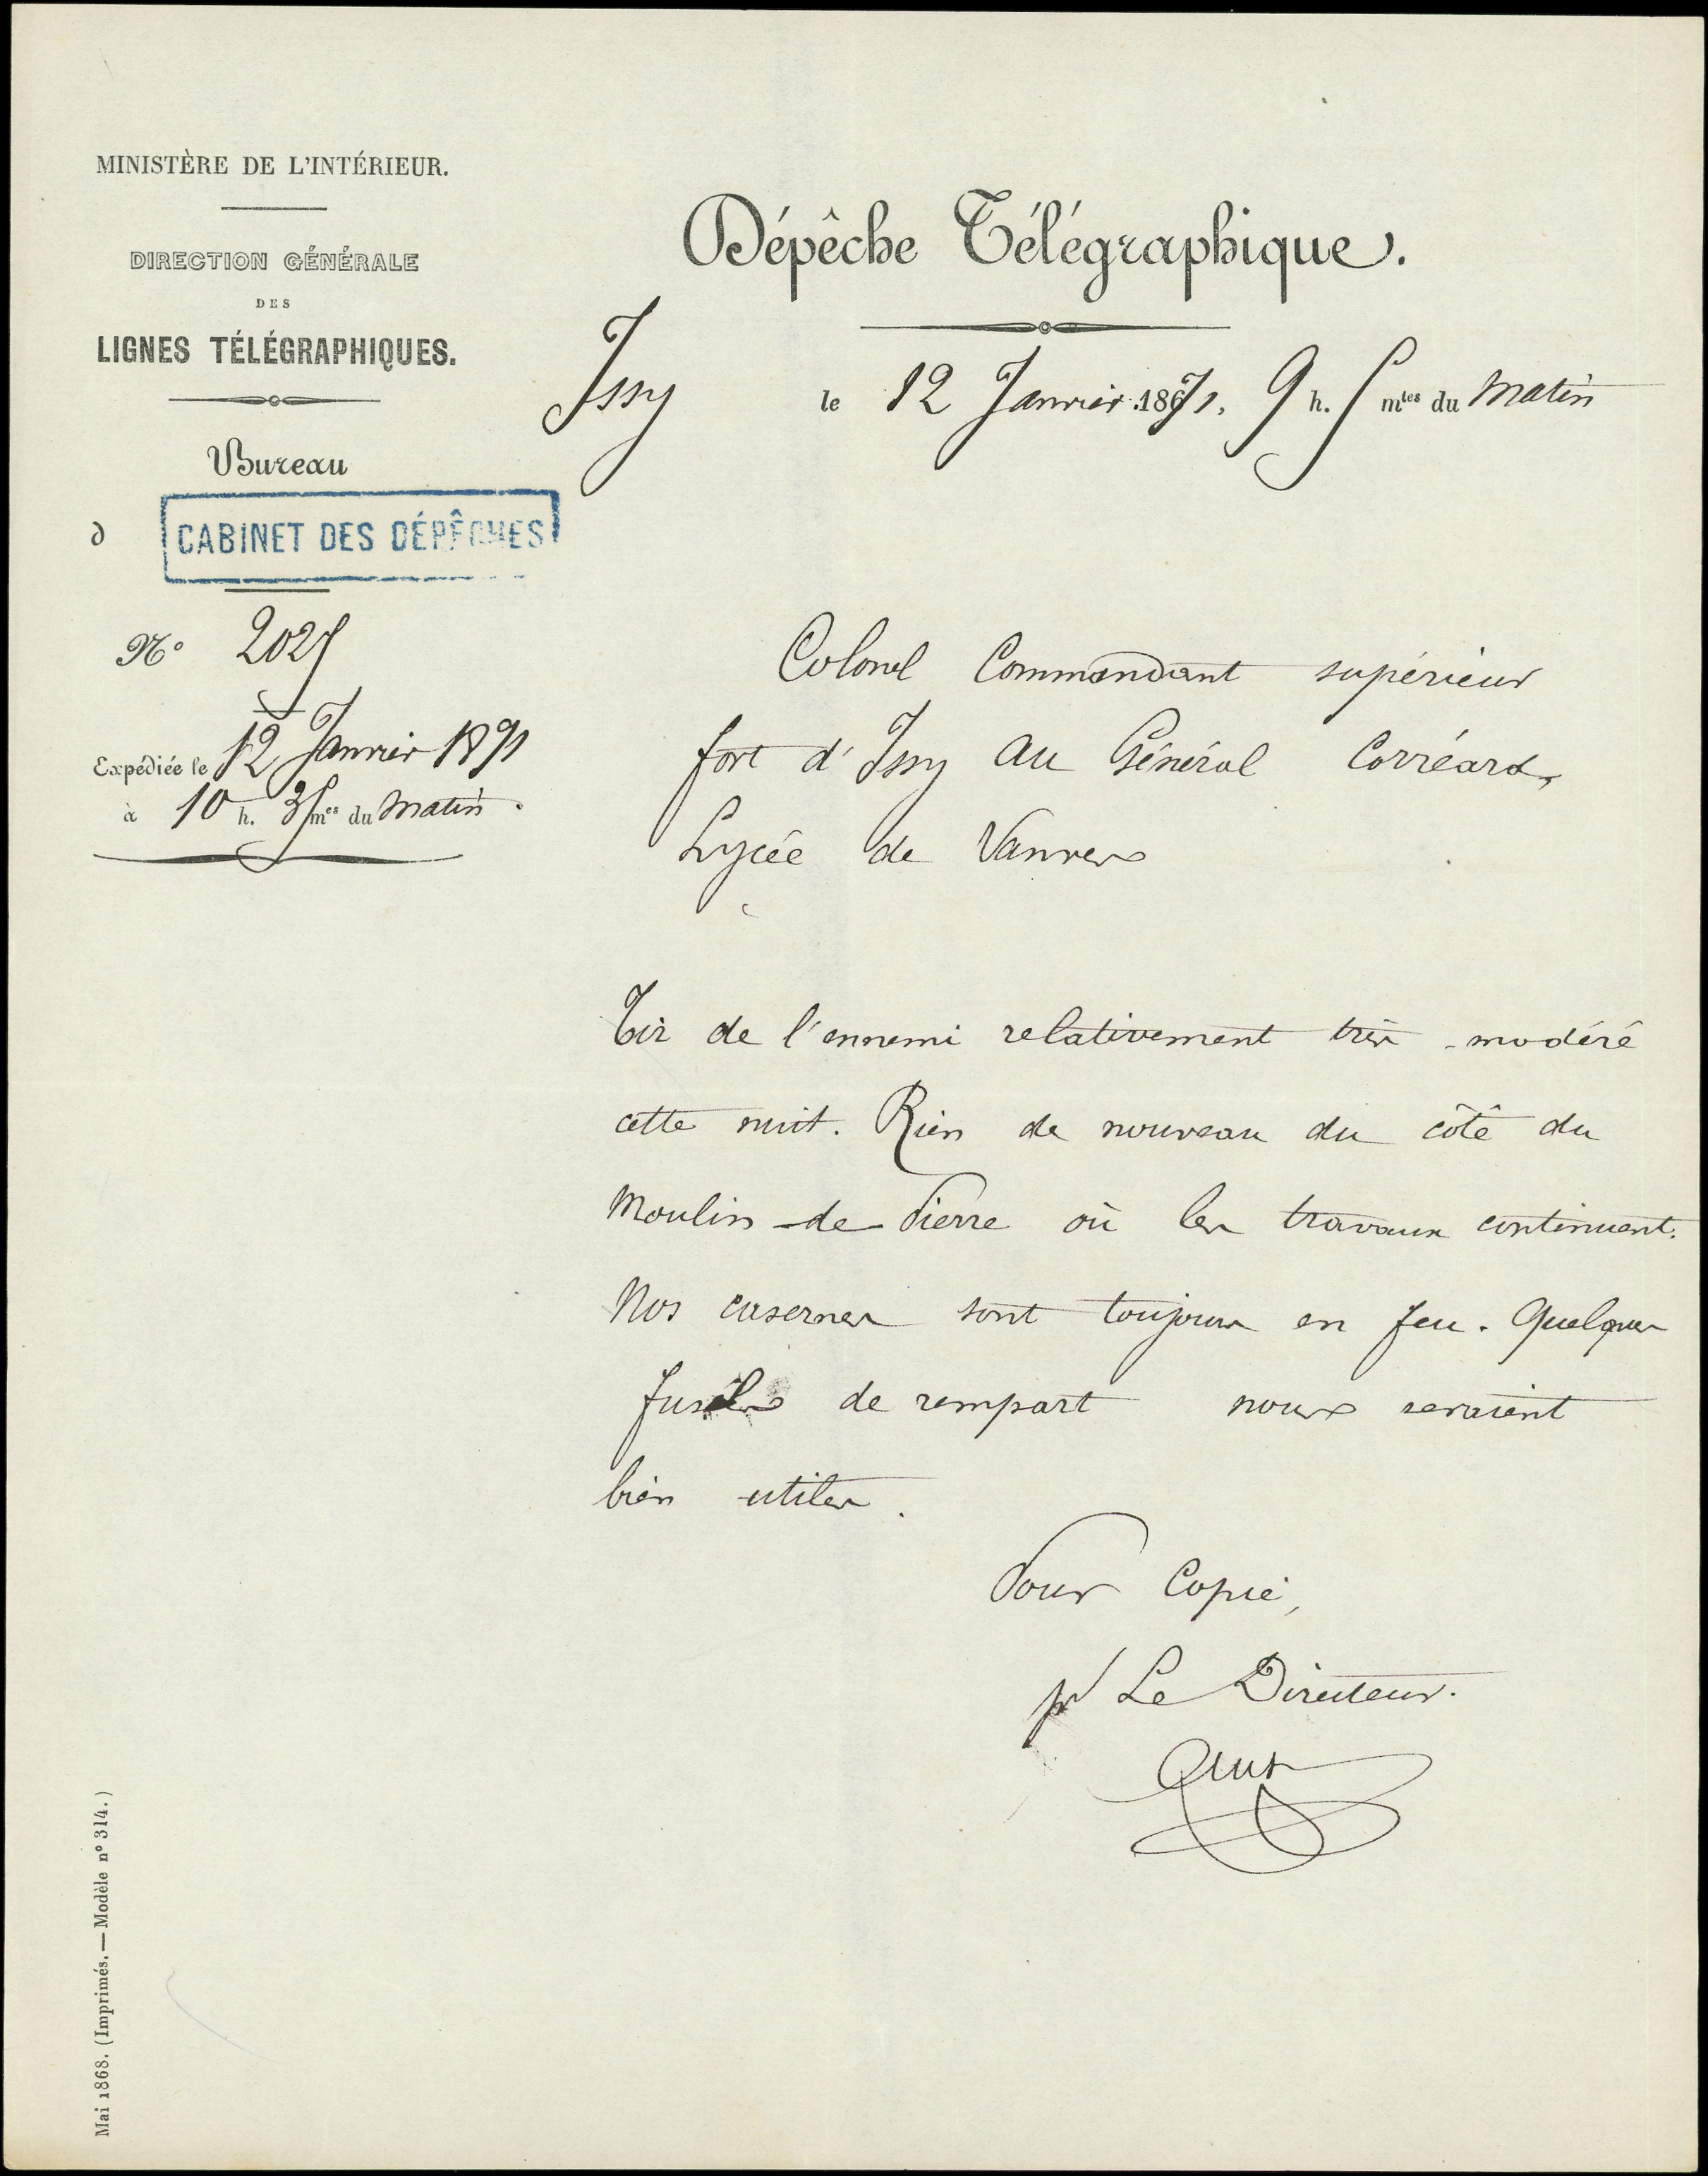 MINISTÈRE DE L'INTÉRIEUR.
DIRECTION GÉNÉRALE
DES
LIGNES TÉLÉGRAPHIQUES.
Bureau
d CABINET DES DÉPÊCHES
N° 2025
Expédiée le 12 Janvier 1871
à 10 h. 35 mes du Matin.
Dépêche Télégraphique.
Issy le 12 Janvier 1871. 9 h. 5 mtes du Matin
Colonel Commandant supérieur
fort d'Issy au Général Corréard,
Lycée de Vanves
Tir de l'ennemi relativement très modéré
cette nuit. Rien de nouveau du côté du
Moulin-de-Pierre où les travaux continuent.
Nos casernes sont toujours en feu. Quelques
fusils de rempart nous seraient
bien utiles.
Pour Copie,
pr Le Directeur.
Mai 1868. (Imprimés. — Modèle n° 314.)